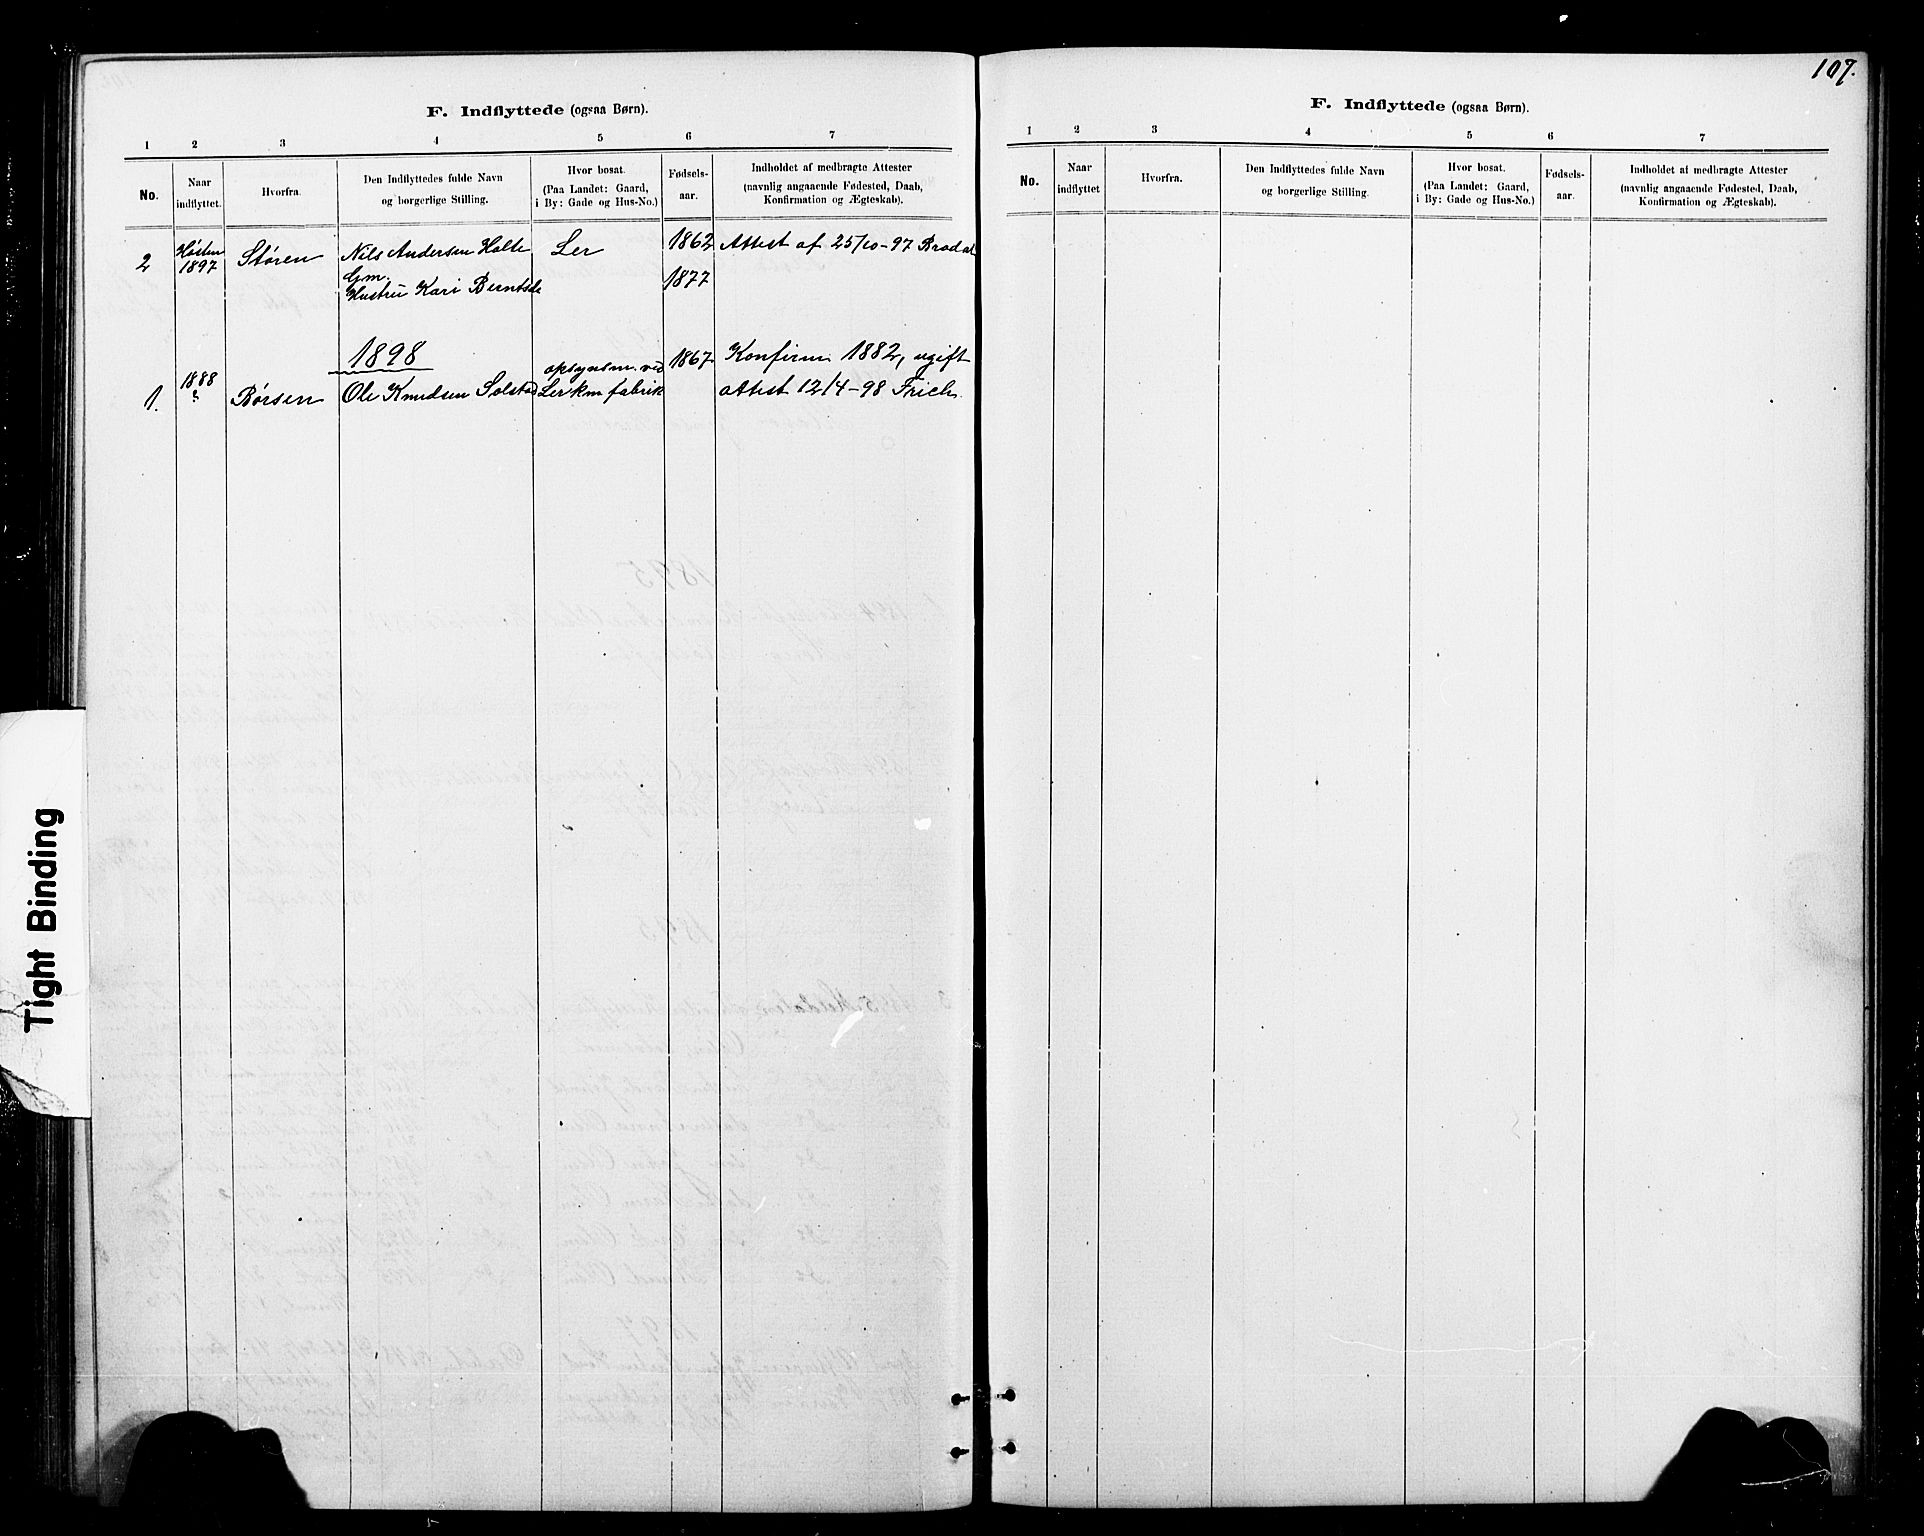 107.
F. Indflyttede (ogsaa Børn).
1 2 3 4 5 6 7
No.
Naar
indflyttet.
Hvorfra.
Den Indflyttedes fulde Navn
og borgerlige Stilling.
Hvor bosat.
(Paa Landet: Gaard,
i By: Gade og Hus-No.)
Fødsels-
aar.
Indholdet af medbragte Attester
(navnlig angaaende Fødested, Daab,
Konfirmation og Ægteskab).
2 Høsten 1897 Støren Nils Andersen Holte Ler 1862 Attest af 25/10-97 Brodal
Gm.
Hustru Kari Berntsdr 1877
1898
1. 1888 ? Børsen Ole Knudsen Solstad opsynsm. ved 1867 Konfirm 1882, ugift
Ler km fabrik attest 12/4-98 Frich.
F. Indflyttede (ogsaa Børn).
1 2 3 4 5 6 7
No.
Naar
indflyttet
Hvorfra.
Den Indflyttedes fulde Navn
og borgerlige Stilling.
Hvor bosat.
(Paa Landet: Gaard,
i By: Gade og Hus-No.)
Fødsels-
aar.
Indholdet af medbragte Attester
(navnlig angaaende Fødested, Daab,
Konfirmation og Ægteskab).
Tight Binding